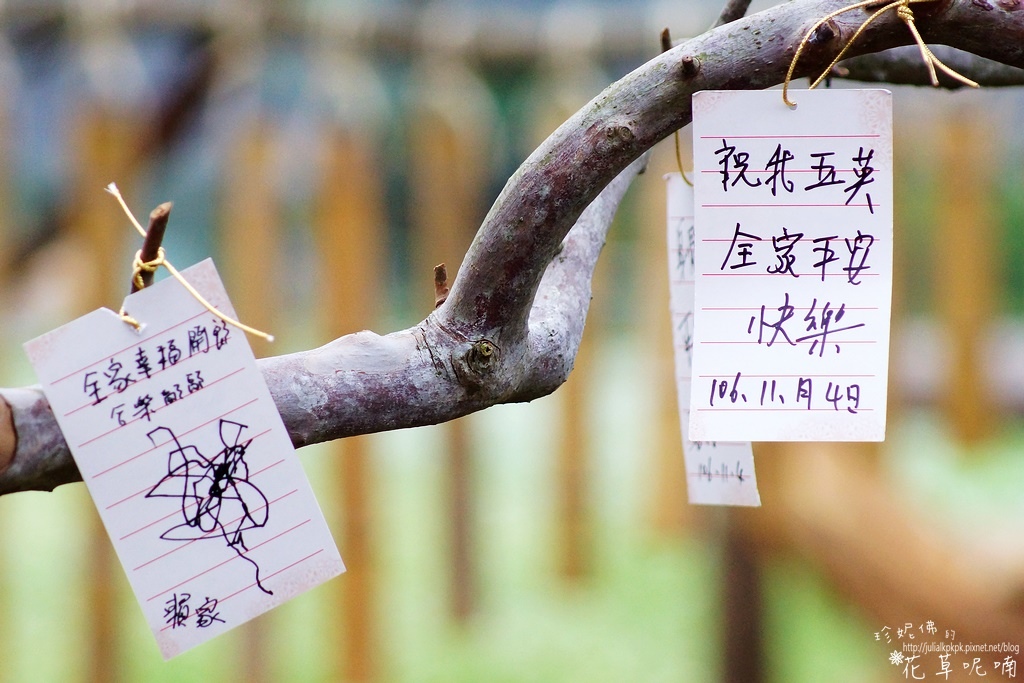 全家幸福開
賴家
祝我五英
全家平安
快樂
106.11.月4日
106.11.4
珍妮佛的
http://julialkpkpk.pixnet.net/blog
花草呢喃